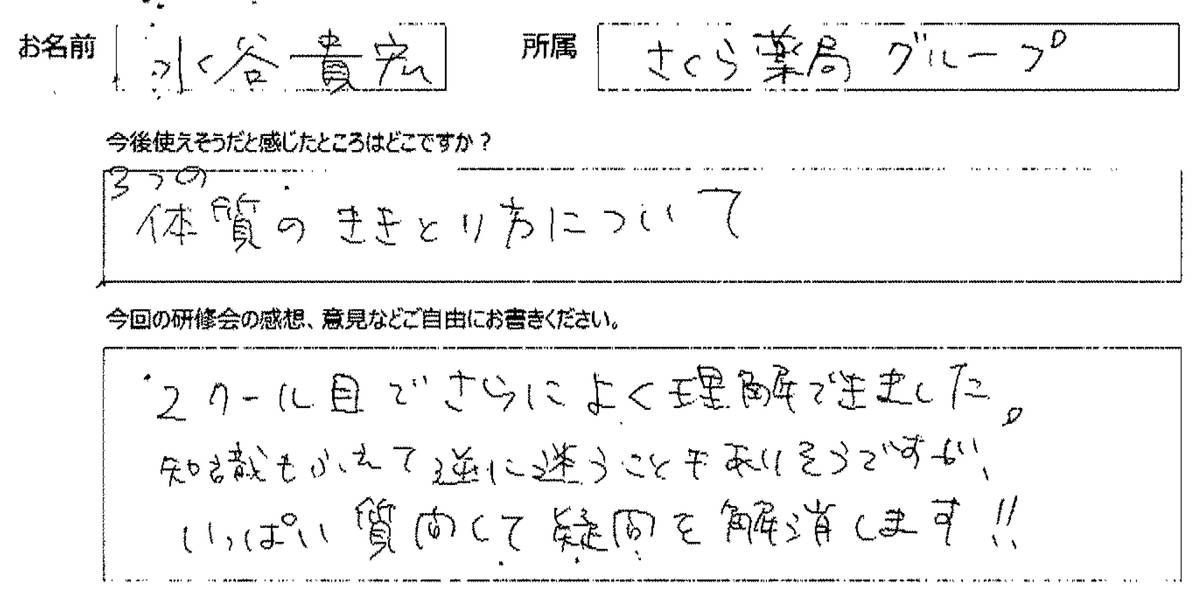 お名前 水谷貴宏 所属 さくら薬局グループ
今後使えそうだと感じたところはどこですか？
3つの
体質のききとり方について
今回の研修会の感想、意見などご自由にお書きください。
2クール目でさらによく理解できました。
知識もふえて逆に迷うこともありそうですが、
いっぱい質問して疑問を解消します!!